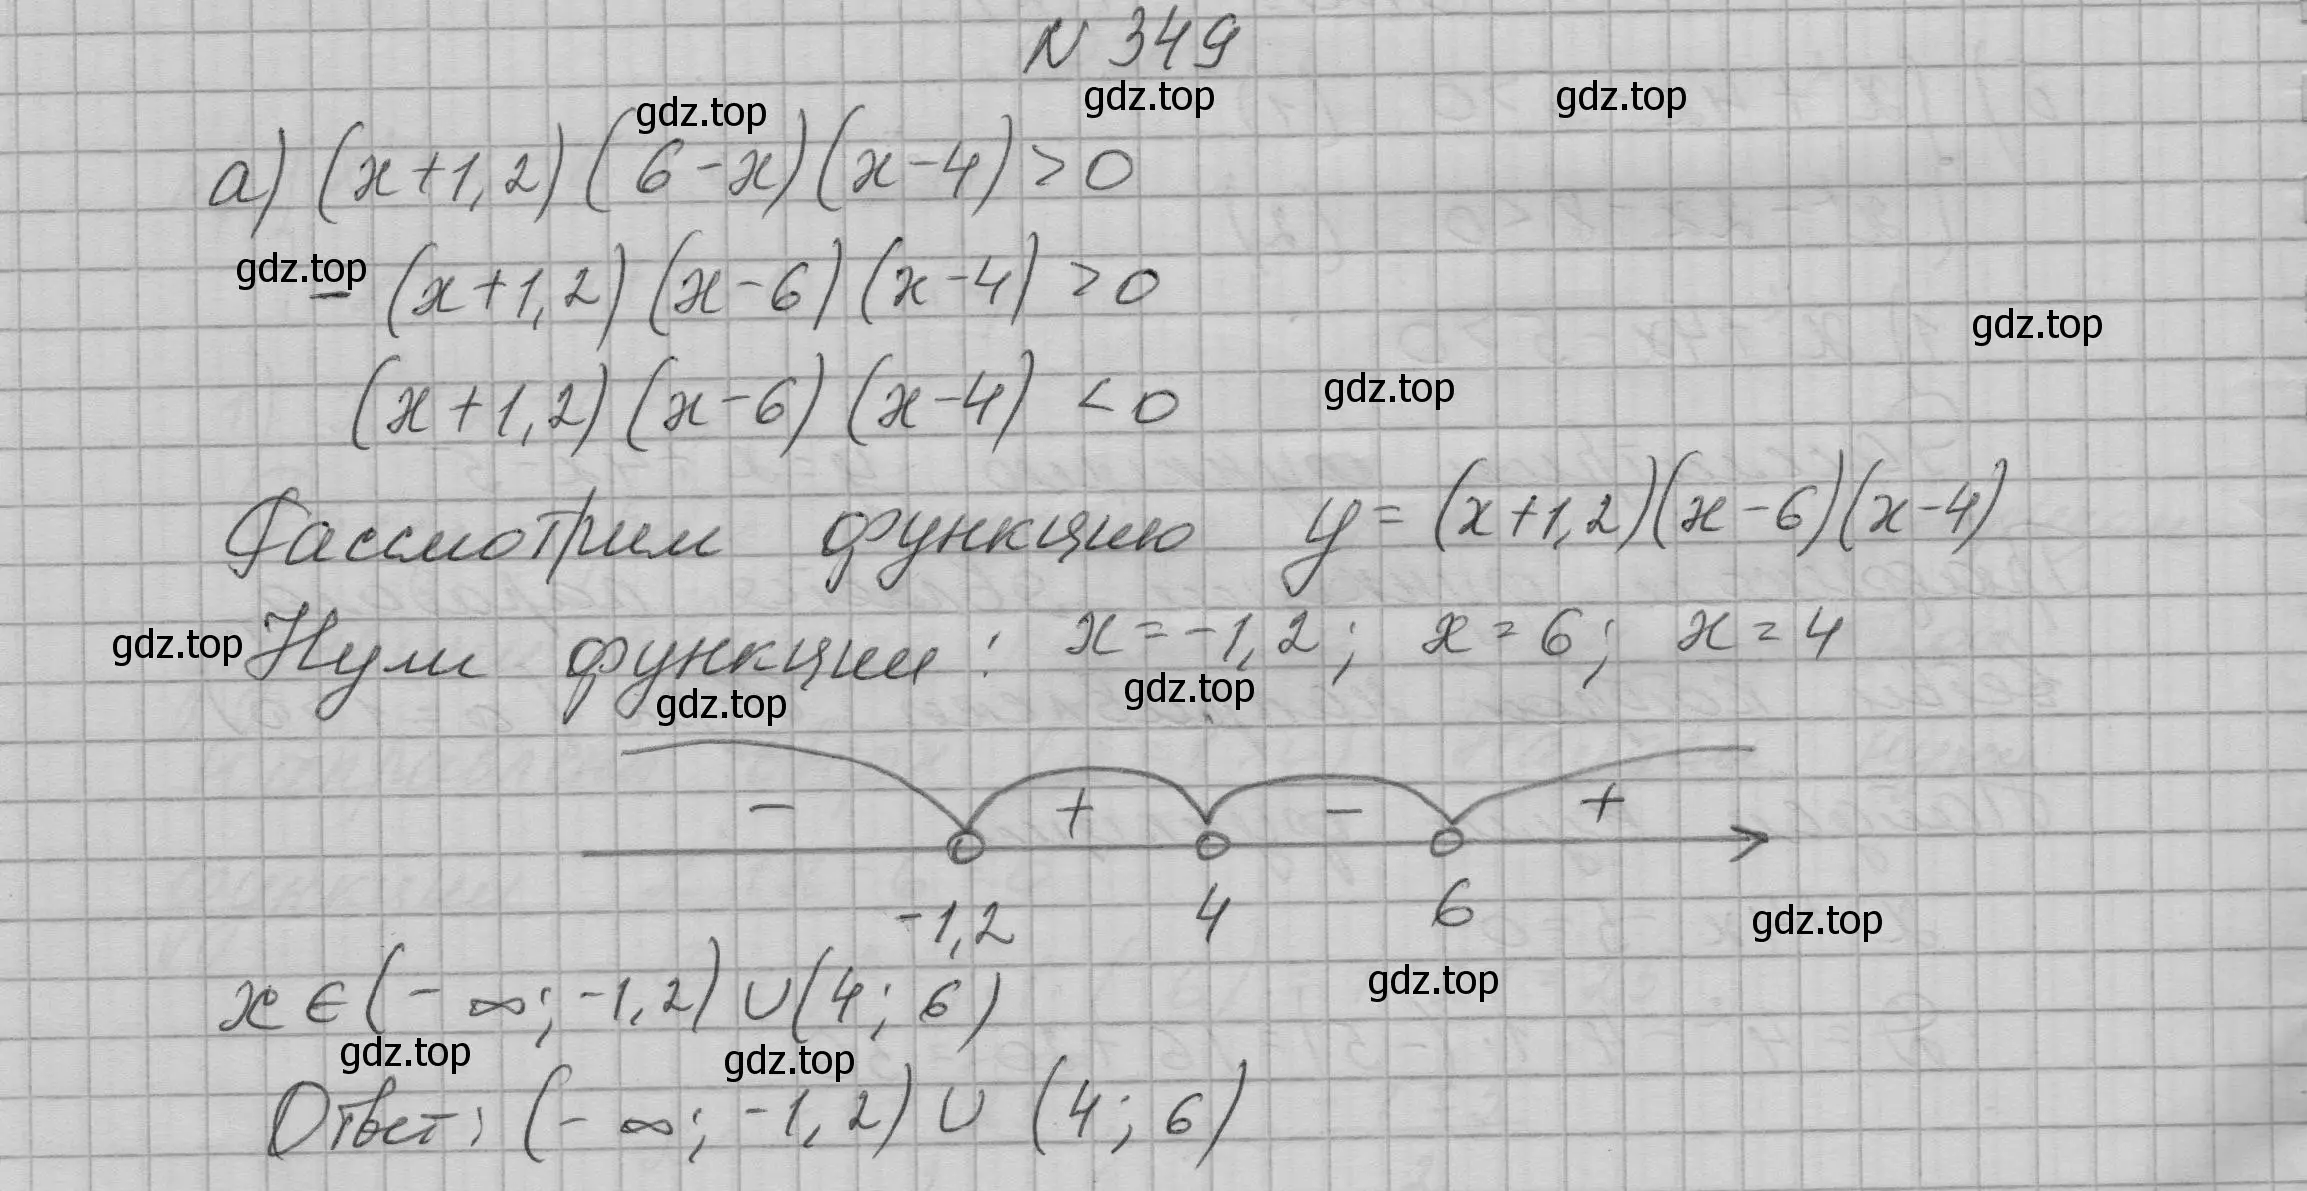 N 349
а) (x+1,2)(6-x)(x-4)>0
-(x+1,2)(x-6)(x-4)>0
(x+1,2)(x-6)(x-4)<0
Рассмотрим функцию y=(x+1,2)(x-6)(x-4)
Нули функции: x=-1,2; x=6; x=4
- + - +
-1,2 4 6
x∈(-∞;-1,2)∪(4;6)
Ответ: (-∞;-1,2)∪(4;6)
gdz.top
gdz.top
gdz.top
gdz.top
gdz.top
gdz.top
gdz.top
gdz.top
gdz.top
gdz.top
gdz.top
gdz.top
gdz.top